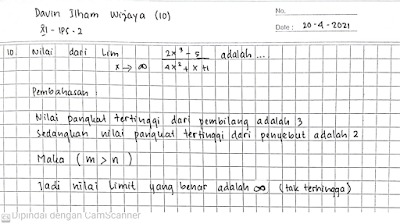 Davin Ilham Wijaya (10)
XI - IPS - 2
No.
Date : 20 - 4 - 2021
10. Nilai dari Lim x → ∞ 2x³ - 5 / 4x² + x + 1 adalah ...
Pembahasan :
Nilai pangkat tertinggi dari pembilang adalah 3
Sedangkan nilai pangkat tertinggi dari penyebut adalah 2
Maka ( m > n )
Jadi nilai limit yang benar adalah ∞ (tak terhingga)
Dipindai dengan CamScanner